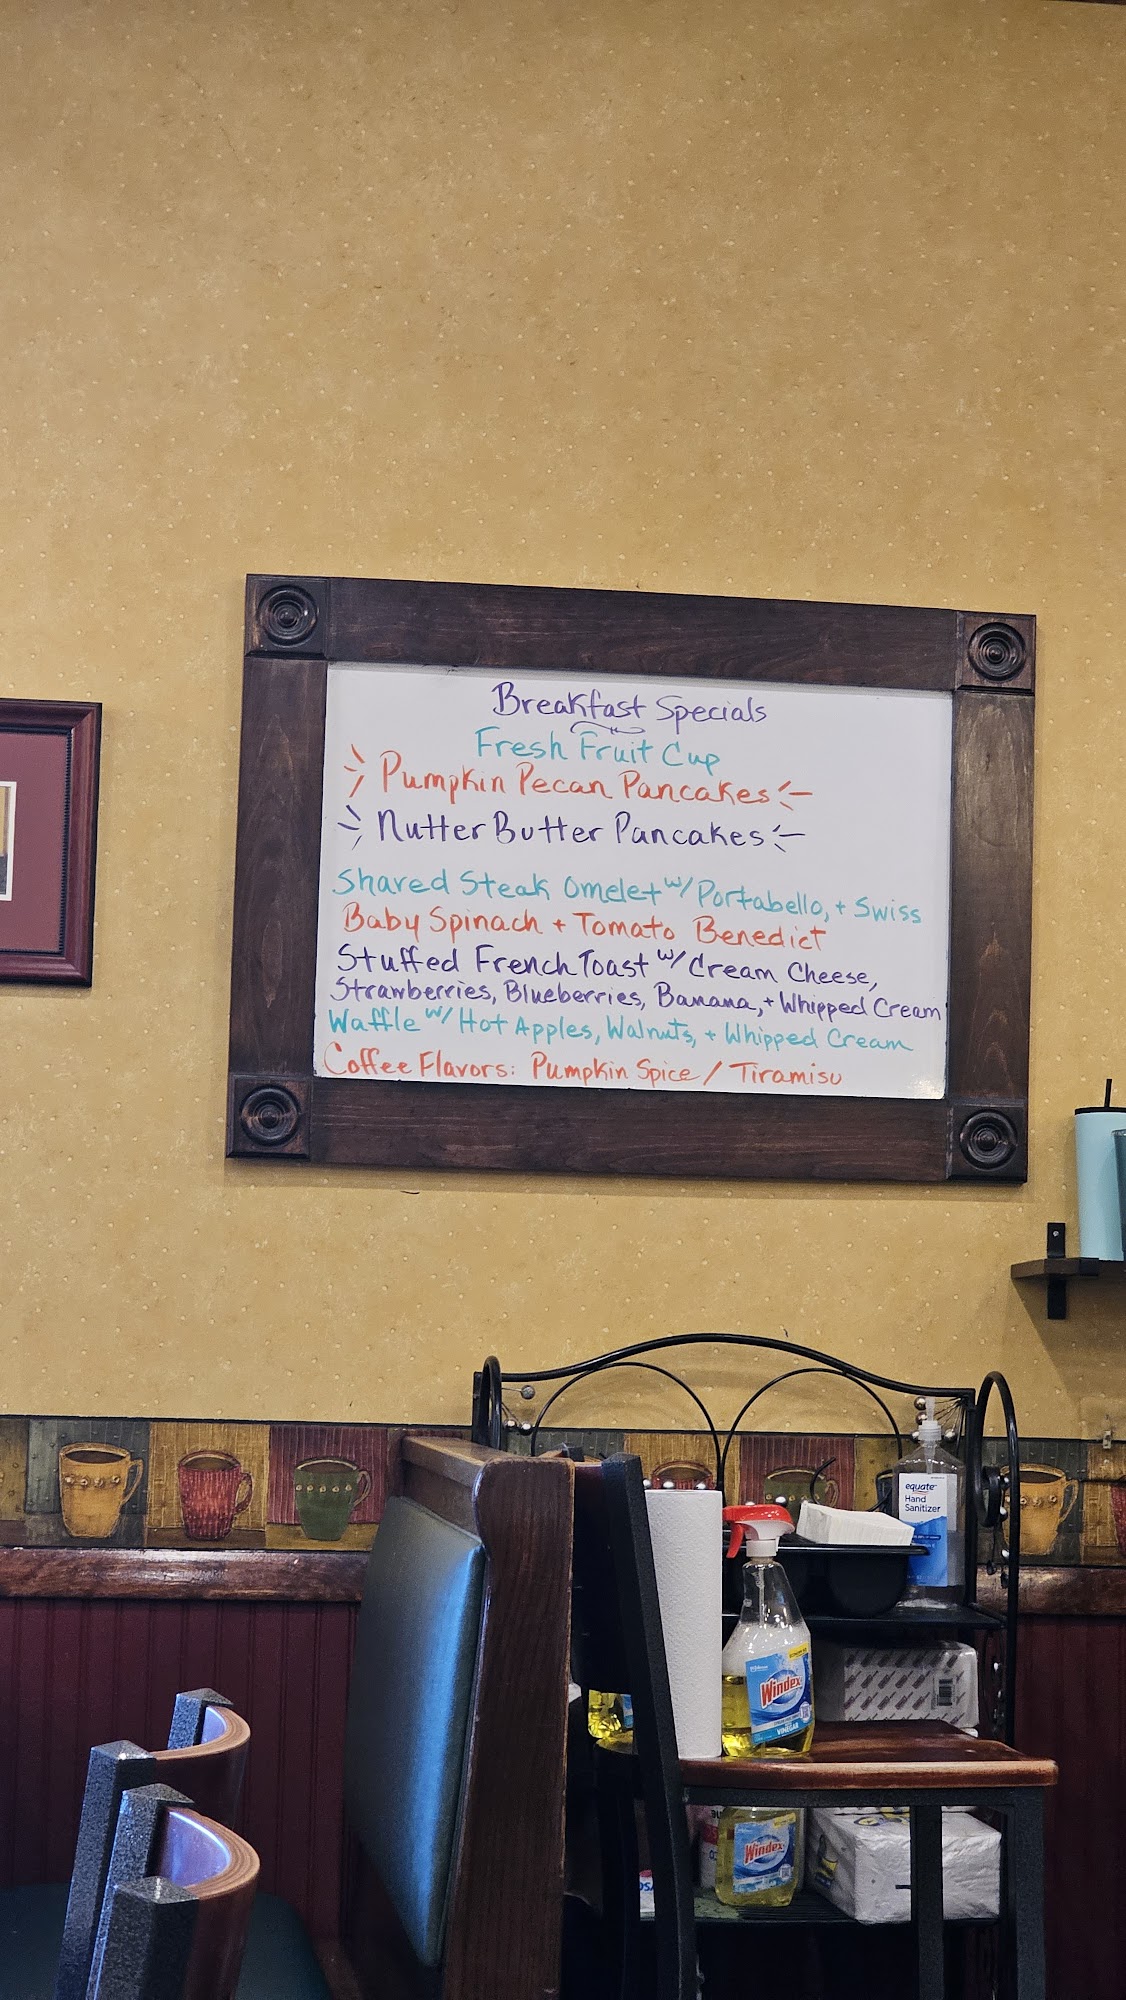 Breakfast Specials
Fresh Fruit Cup
Pumpkin Pecan Pancakes
Nutter Butter Pancakes
Shared Steak Omelet w/ Portabello, + Swiss
Baby Spinach + Tomato Benedict
Stuffed French Toast w/ Cream Cheese,
Strawberries, Blueberries, Banana, + Whipped Cream
Waffle w/ Hot Apples, Walnuts, + Whipped Cream
Coffee Flavors: Pumpkin Spice / Tiramisu
equate
Hand
Sanitizer
Windex
VINEGAR
Windex